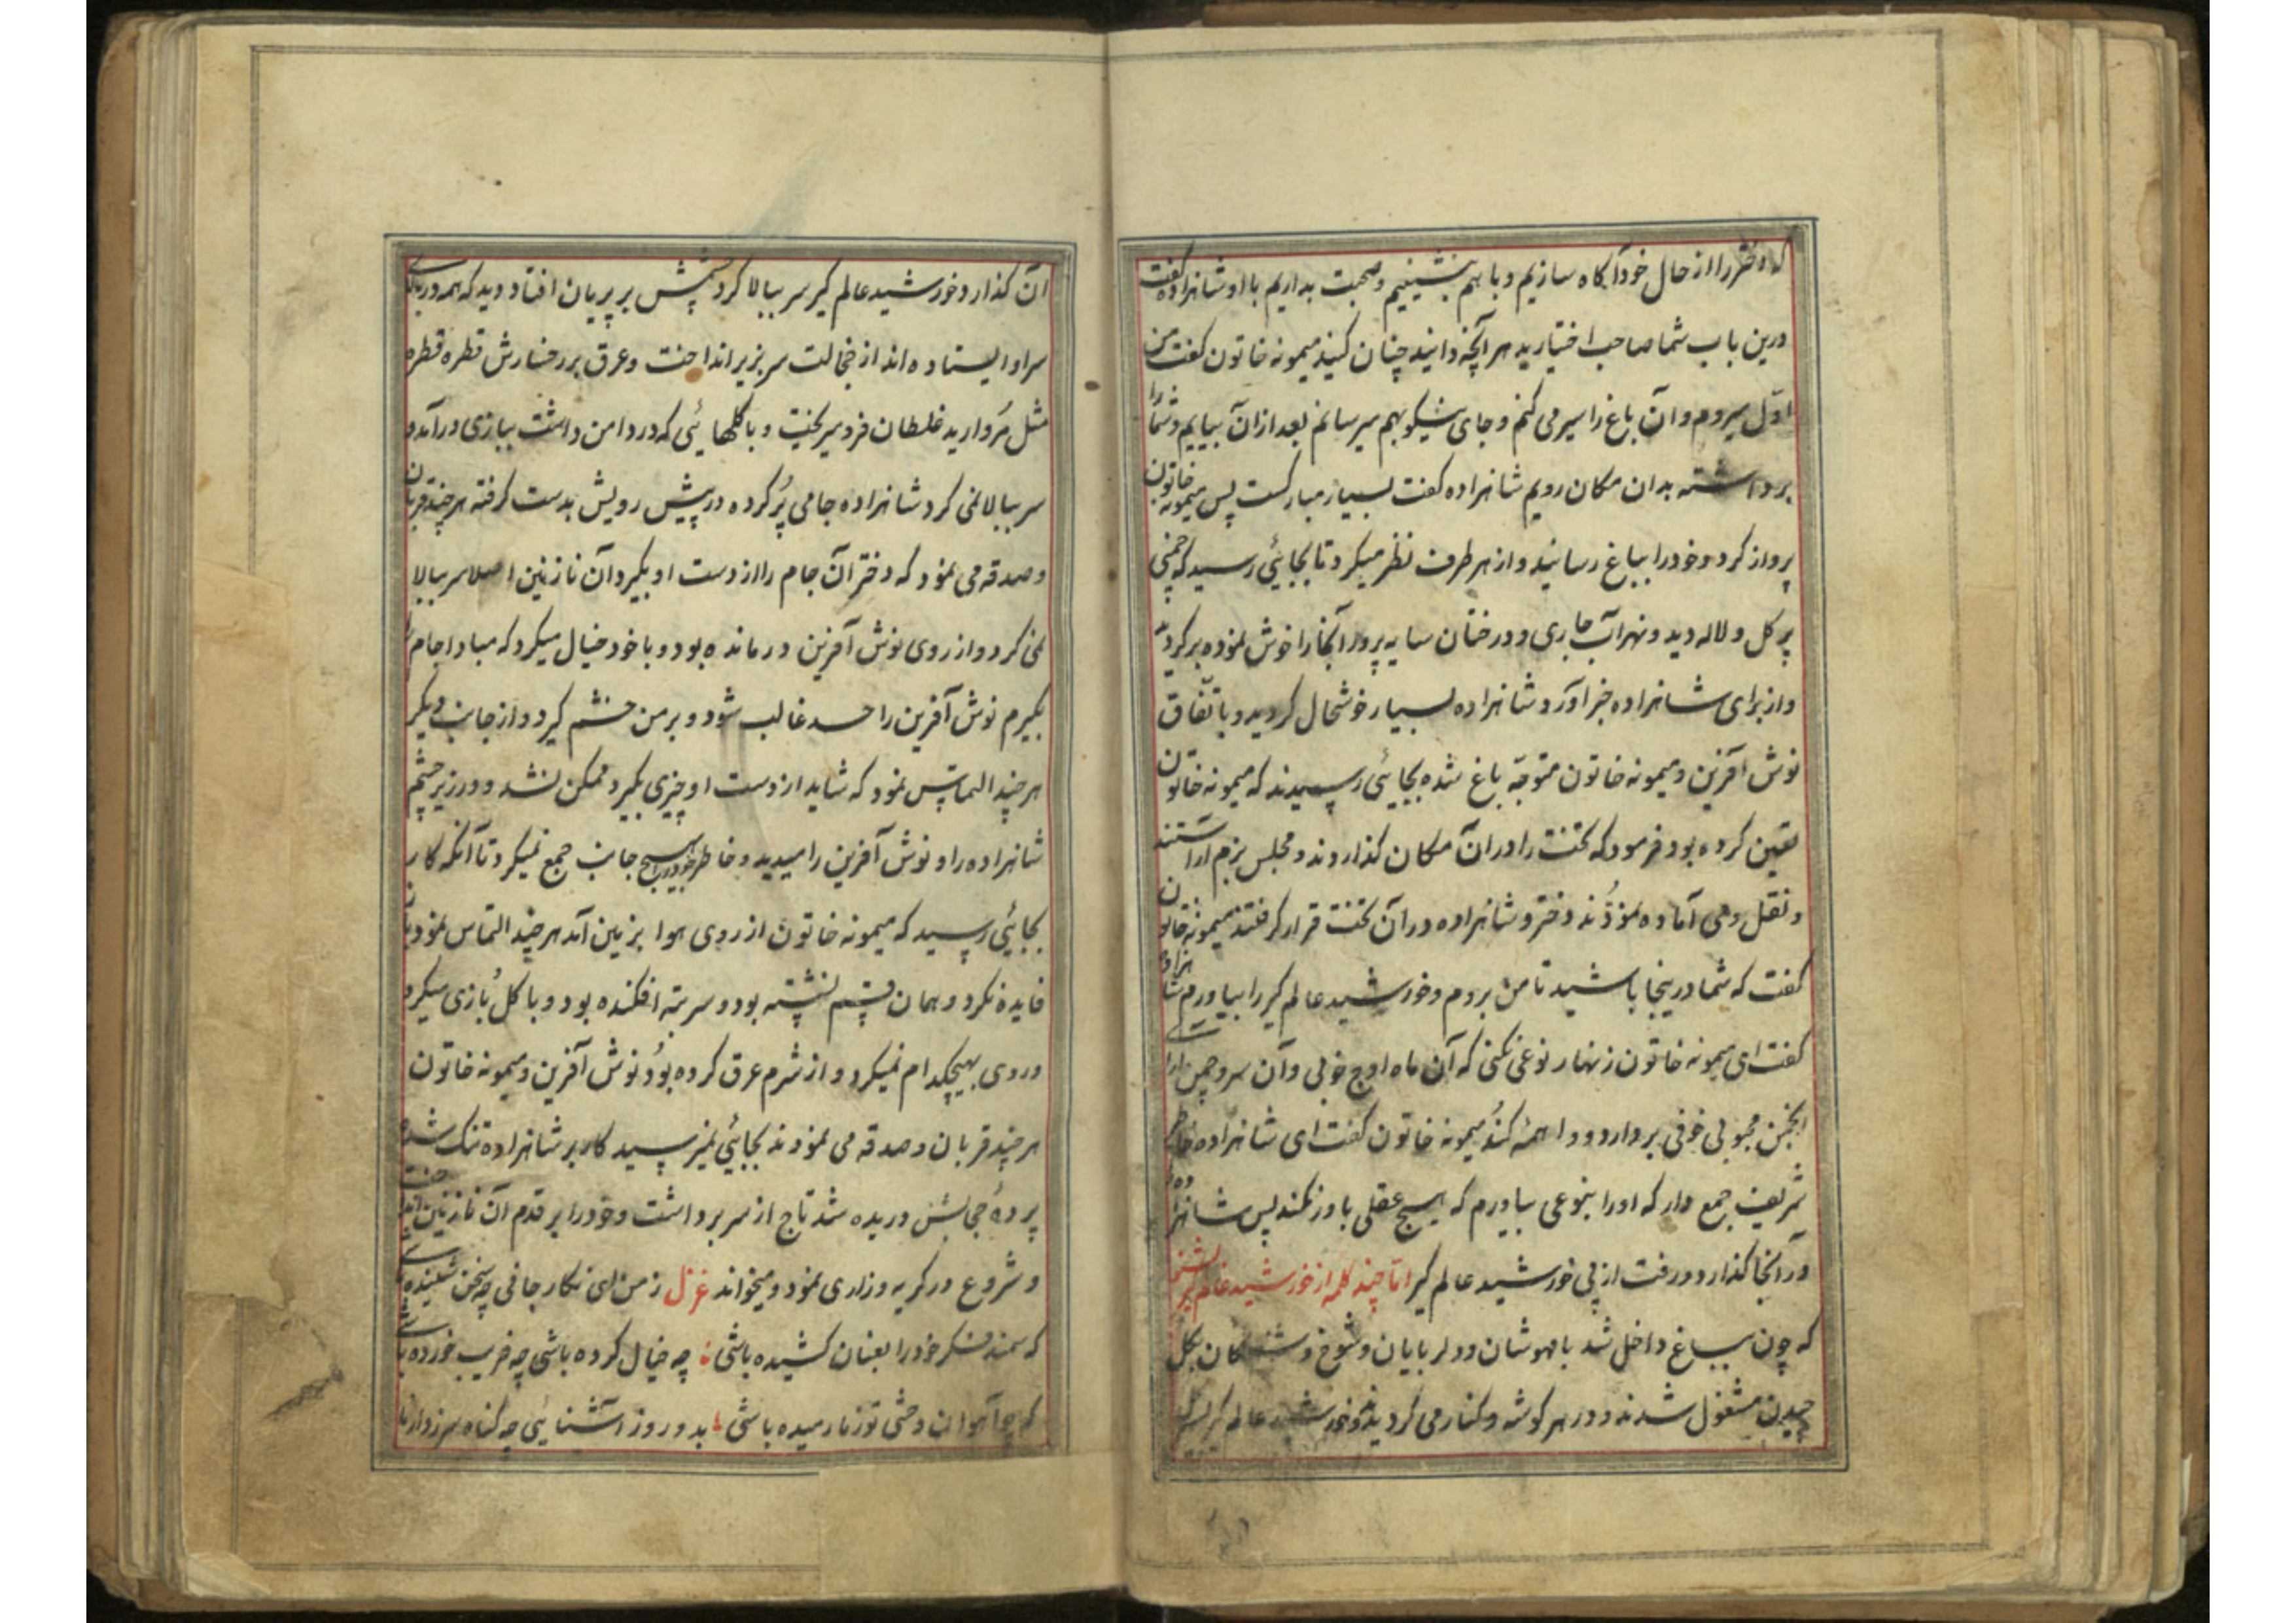 که دختر را از حال خود آگاه سازیم و با هم بنشینیم و صحبت بداریم با او شاهزاده گفت
درین باب شما صاحب اختیارید هر آنچه دانید چنان کنید میمونه خاتون گفت من
اوّل میروم و آن باغ را سیر می کنم و جای نیکو بهم میرسانم بعد از آن بیایم و شما را
برداشته بدان مکان رویم شاهزاده گفت بسیار مبارکست پس میمونه خاتون
پرواز کرد و خود را بباغ رسانید و از هر طرف نظر میکرد تا بجائی رسید که چمنی
پر گل و لاله دید و نهر آب جاری و درختان سایه پرور آنجا را خوش نموده برگردید
و از برای شاهزاده خبر آورد شاهزاده بسیار خوشحال گردید و باتّفاق
نوش آفرین و میمونه خاتون متوجّه باغ شده بجائی رسیدند که میمونه خاتون
تعین کرده بود فرمود که تخت را در آن مکان گذاردند و مجلس بزم آراستند
و نقل و می آماده نمودند دختر و شاهزاده در آن تخت قرار گرفتند میمونه خاتون
گفت که شما درینجا باشید تا من بروم و خورشید عالم گیر را بیاورم شاهزاده
گفت ای میمونه خاتون زنهار نوعی نکنی که آن ماه اوج خوبی و آن سرو چمن آرای
انجمن محبوبی خوفی بردارد و واهمه کند میمونه خاتون گفت ای شاهزاده خاطر
شریف جمع دار که او را بنوعی بیاورم که هیچ عقلی باور نکند پس شاهزاده را
در آنجا گذارد و رفت از پی خورشید عالم گیر امّا چند کلمه از خورشید عالم گیر بشنو
که چون بباغ داخل شد با مهوشان و دلربایان و شوخ و شنگان بگل
چیدن مشغول شدند و در هر گوشه و کنار می گردیدند و خورشید عالم گیر
آن گذار و خورشید عالم گیر سر ببالا کرد چشمش بر پریان افتاد دید که همه در بالای
سر او ایستاده اند از خجالت سر بزیر انداخت و عرق بر رخسارش قطره قطره
مثل مروارید غلطان فرو میریخت و با گلهائی که در دامن داشت ببازی درآمد و
سر ببالا نمی کرد شاهزاده جامی پُر کرده در پیش رویش بدست گرفته هر چند قربان
و صدقه می نمود که دختر آن جام را از دست او بگیرد آن نازنین اصلا سر ببالا
نمی کرد و از روی نوش آفرین درمانده بود و با خود خیال میکرد که مبادا جام را
بگیرم نوش آفرین را حسد غالب شود و بر من خشم گیرد و از جانب دیگر
هر چند التماس نمود که شاید از دست او چیزی بگیرد ممکن نشد و در زیر چشم
شاهزاده را و نوش آفرین را میدید و خاطر خود را بهیچ جانب جمع نمیکرد تا آنکه کار
بجائی رسید که میمونه خاتون از روی هوا بزمین آمد هر چند التماس نمود بآن
فایده نکرد و همان قسم نشسته بود و سر بته افکنده بود و با گل بازی میکرد
و روی بهیچکدام نمیکرد و از شرم عرق کرده بود نوش آفرین و میمونه خاتون
هر چند قربان و صدقه می نمودند بجائی نمیرسید کار بر شاهزاده تنگ شده
پردهٔ حجابش دریده شد تاج از سر برداشت و خود را بر قدم آن نازنین انداخت
و شروع در گریه و زاری نمود و میخواند غزل ز من ای نگار جانی چه سخن شنیده باشی
که سمند فکر خود را بعنان کشیده باشی چه خیال کرده باشی چه فریب خورده باشی
که چو آهوان وحشی تو ز ما رمیده باشی بدو روز آشنائی چه گناه سر زد از ما